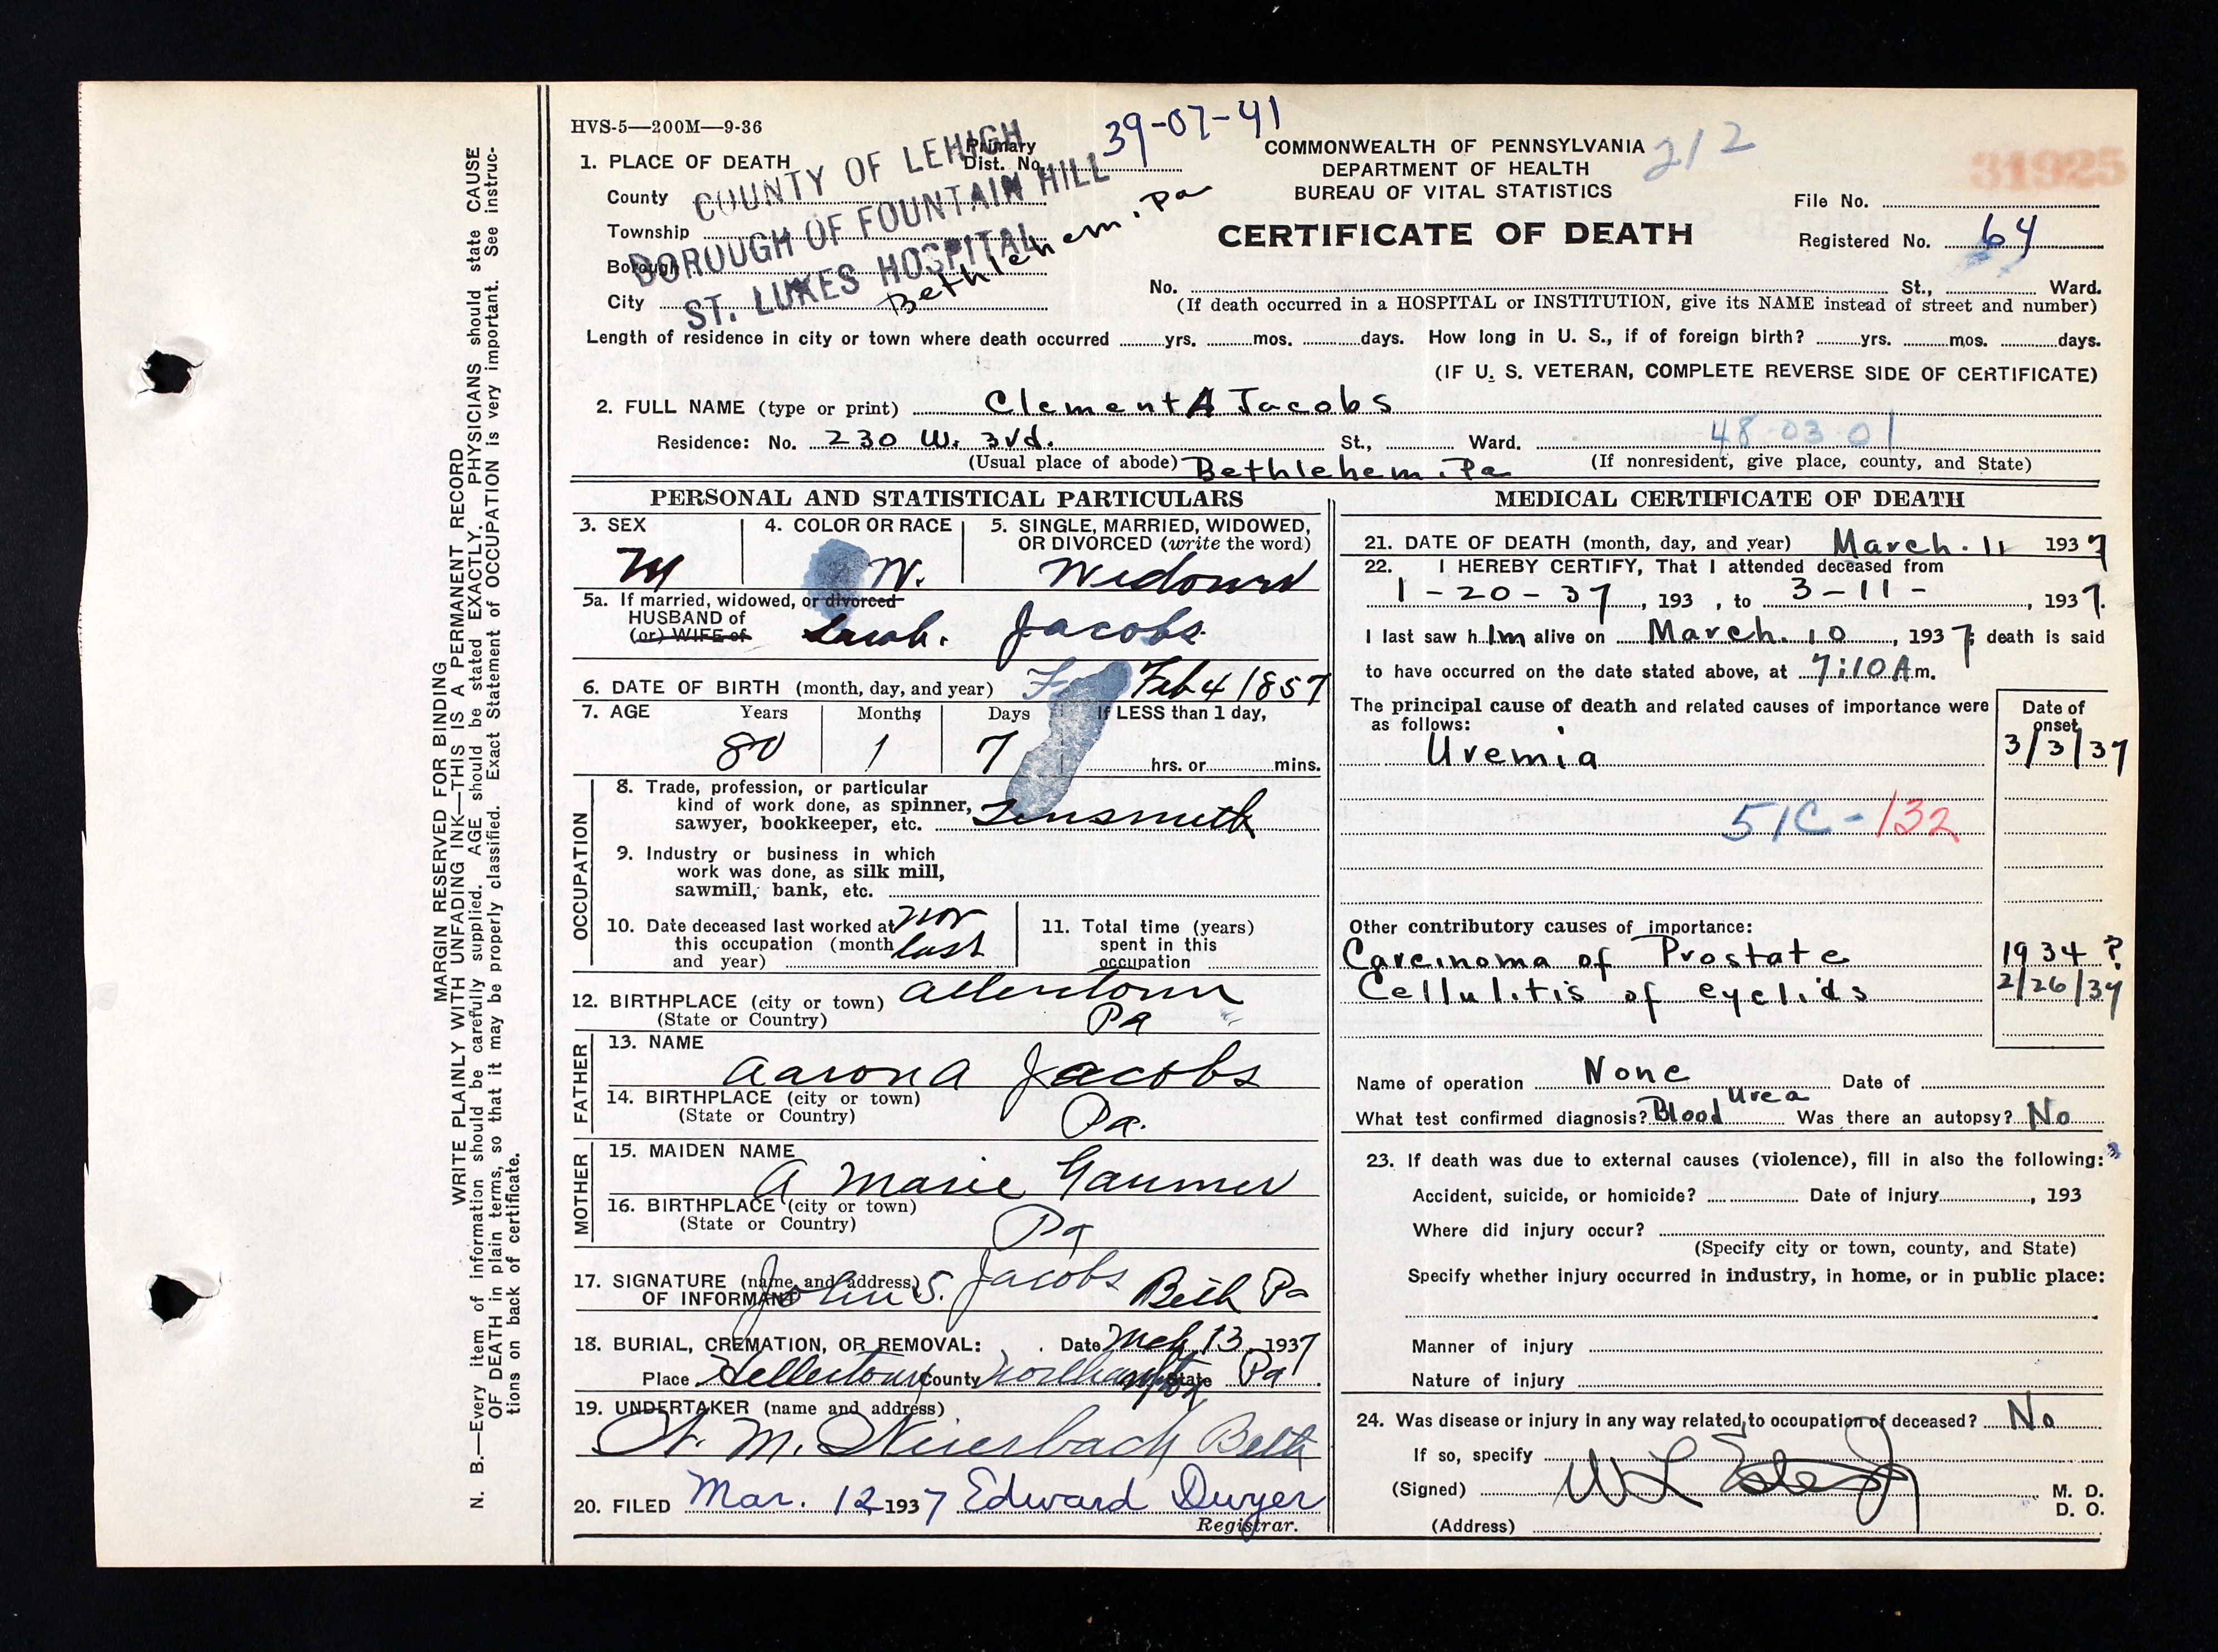 HVS-5—200M—9-36
39-07-41
212
31925
1. PLACE OF DEATH
Primary Dist. No.
COMMONWEALTH OF PENNSYLVANIA
DEPARTMENT OF HEALTH
BUREAU OF VITAL STATISTICS
CERTIFICATE OF DEATH
File No.
Registered No. 64
County
COUNTY OF LEHIGH
Township
BOROUGH OF FOUNTAIN HILL
Borough
ST. LUKES HOSPITAL
City
Bethlehem, Pa
No. St., Ward.
(If death occurred in a HOSPITAL or INSTITUTION, give its NAME instead of street and number)
Length of residence in city or town where death occurred yrs. mos. days. How long in U. S., if of foreign birth? yrs. mos. days.
(IF U. S. VETERAN, COMPLETE REVERSE SIDE OF CERTIFICATE)
2. FULL NAME (type or print) Clement A Jacobs
Residence: No. 230 W. 3rd. St., Ward. 48-03-01
(Usual place of abode) Bethlehem. Pa (If nonresident, give place, county, and State)
PERSONAL AND STATISTICAL PARTICULARS
3. SEX
M
4. COLOR OR RACE
W.
5. SINGLE, MARRIED, WIDOWED, OR DIVORCED (write the word)
Widowed
5a. If married, widowed, or divorced
HUSBAND of
(or) WIFE of
Jacobs
6. DATE OF BIRTH (month, day, and year) Feb 4 1857
7. AGE Years Months Days If LESS than 1 day,
80 1 7 hrs. or mins.
OCCUPATION
8. Trade, profession, or particular
kind of work done, as spinner,
sawyer, bookkeeper, etc. Tinsmith
9. Industry or business in which
work was done, as silk mill,
sawmill, bank, etc.
10. Date deceased last worked at
this occupation (month
and year)
11. Total time (years)
spent in this
occupation
12. BIRTHPLACE (city or town) Allentown
(State or Country) Pa
FATHER
13. NAME
Aaron A Jacobs
14. BIRTHPLACE (city or town)
(State or Country) Pa.
MOTHER
15. MAIDEN NAME
A Marie Gaumer
16. BIRTHPLACE (city or town)
(State or Country) Pa
17. SIGNATURE (name and address)
OF INFORMANT John S. Jacobs Beth Pa
18. BURIAL, CREMATION, OR REMOVAL: Date Mch 13, 1937
Place Hellertown County Northampton State Pa
19. UNDERTAKER (name and address)
Beth
20. FILED Mar. 12 1937 Edward Dwyer
Registrar.
MEDICAL CERTIFICATE OF DEATH
21. DATE OF DEATH (month, day, and year) March. 11 1937
22. I HEREBY CERTIFY, That I attended deceased from
1-20-37, 193 , to 3-11-, 1937.
I last saw him alive on March. 10, 1937; death is said
to have occurred on the date stated above, at 7:10 A m.
The principal cause of death and related causes of importance were
as follows:
Date of onset
Uremia 3/3/37
51C-132
Other contributory causes of importance:
Carcinoma of Prostate 1934 ?
Cellulitis of eyelids 2/26/37
Name of operation None Date of
What test confirmed diagnosis? Blood Urea Was there an autopsy? No
23. If death was due to external causes (violence), fill in also the following:
Accident, suicide, or homicide? Date of injury , 193
Where did injury occur?
(Specify city or town, county, and State)
Specify whether injury occurred in industry, in home, or in public place:
Manner of injury
Nature of injury
24. Was disease or injury in any way related to occupation of deceased? No
If so, specify
(Signed) M. D.
D. O.
(Address)
MARGIN RESERVED FOR BINDING
WRITE PLAINLY WITH UNFADING INK—THIS IS A PERMANENT RECORD
N. B.—Every item of information should be carefully supplied. AGE should be stated EXACTLY. PHYSICIANS should state CAUSE
OF DEATH in plain terms, so that it may be properly classified. Exact Statement of OCCUPATION is very important. See instruc-
tions on back of certificate.